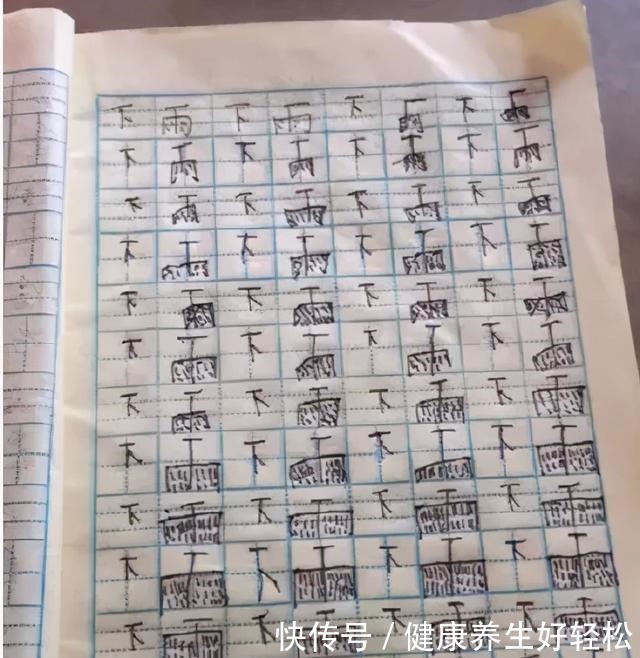 下雨下雨下雨下雨
下雨下雨下雨下雨
下雨下雨下雨下雨
下雨下雨下雨下雨
下雨下雨下雨下雨
下雨下雨下雨下雨
下雨下雨下雨下雨
下雨下雨下雨下雨
下雨下雨下雨下雨
下雨下雨下雨下雨
下雨下雨下雨下雨
快传号/健康养生好轻松